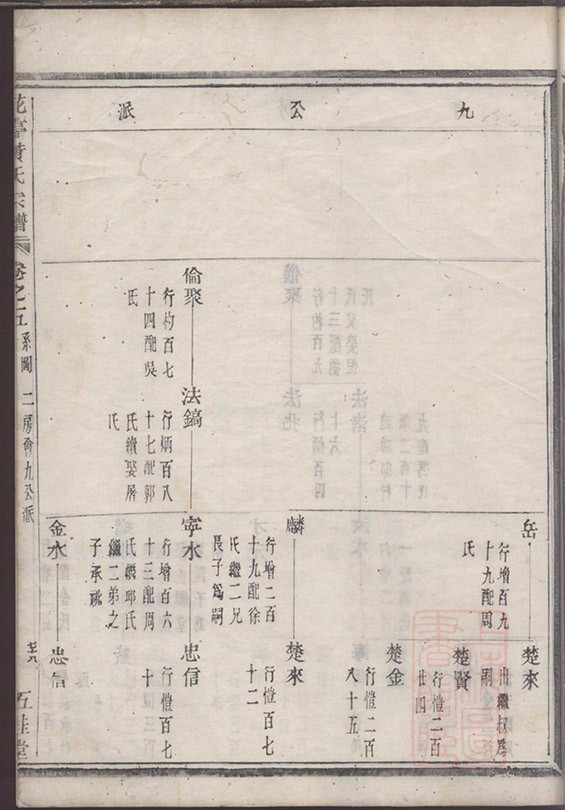 九公派
岳
行增百九
十九配周
氏
楚來
出繼叔爲
嗣
楚賢
行愷二百
廿四
楚金
行愷二百
八十五
麟
行增二百
十九配徐
氏繼二兄
長子爲嗣
楚來
行愷百七
十二
倫聚
行杓百七
十四配吳
氏
法鎬
行炳百八
十七配郭
氏續娶屠
氏
寧水
行增百六
十三配周
氏續邱氏
繼二弟之
子承祧
忠信
行愷百七
十
金水
忠信
花亭黃氏宗譜
卷之五
系圖
二房會九公派
五桂堂